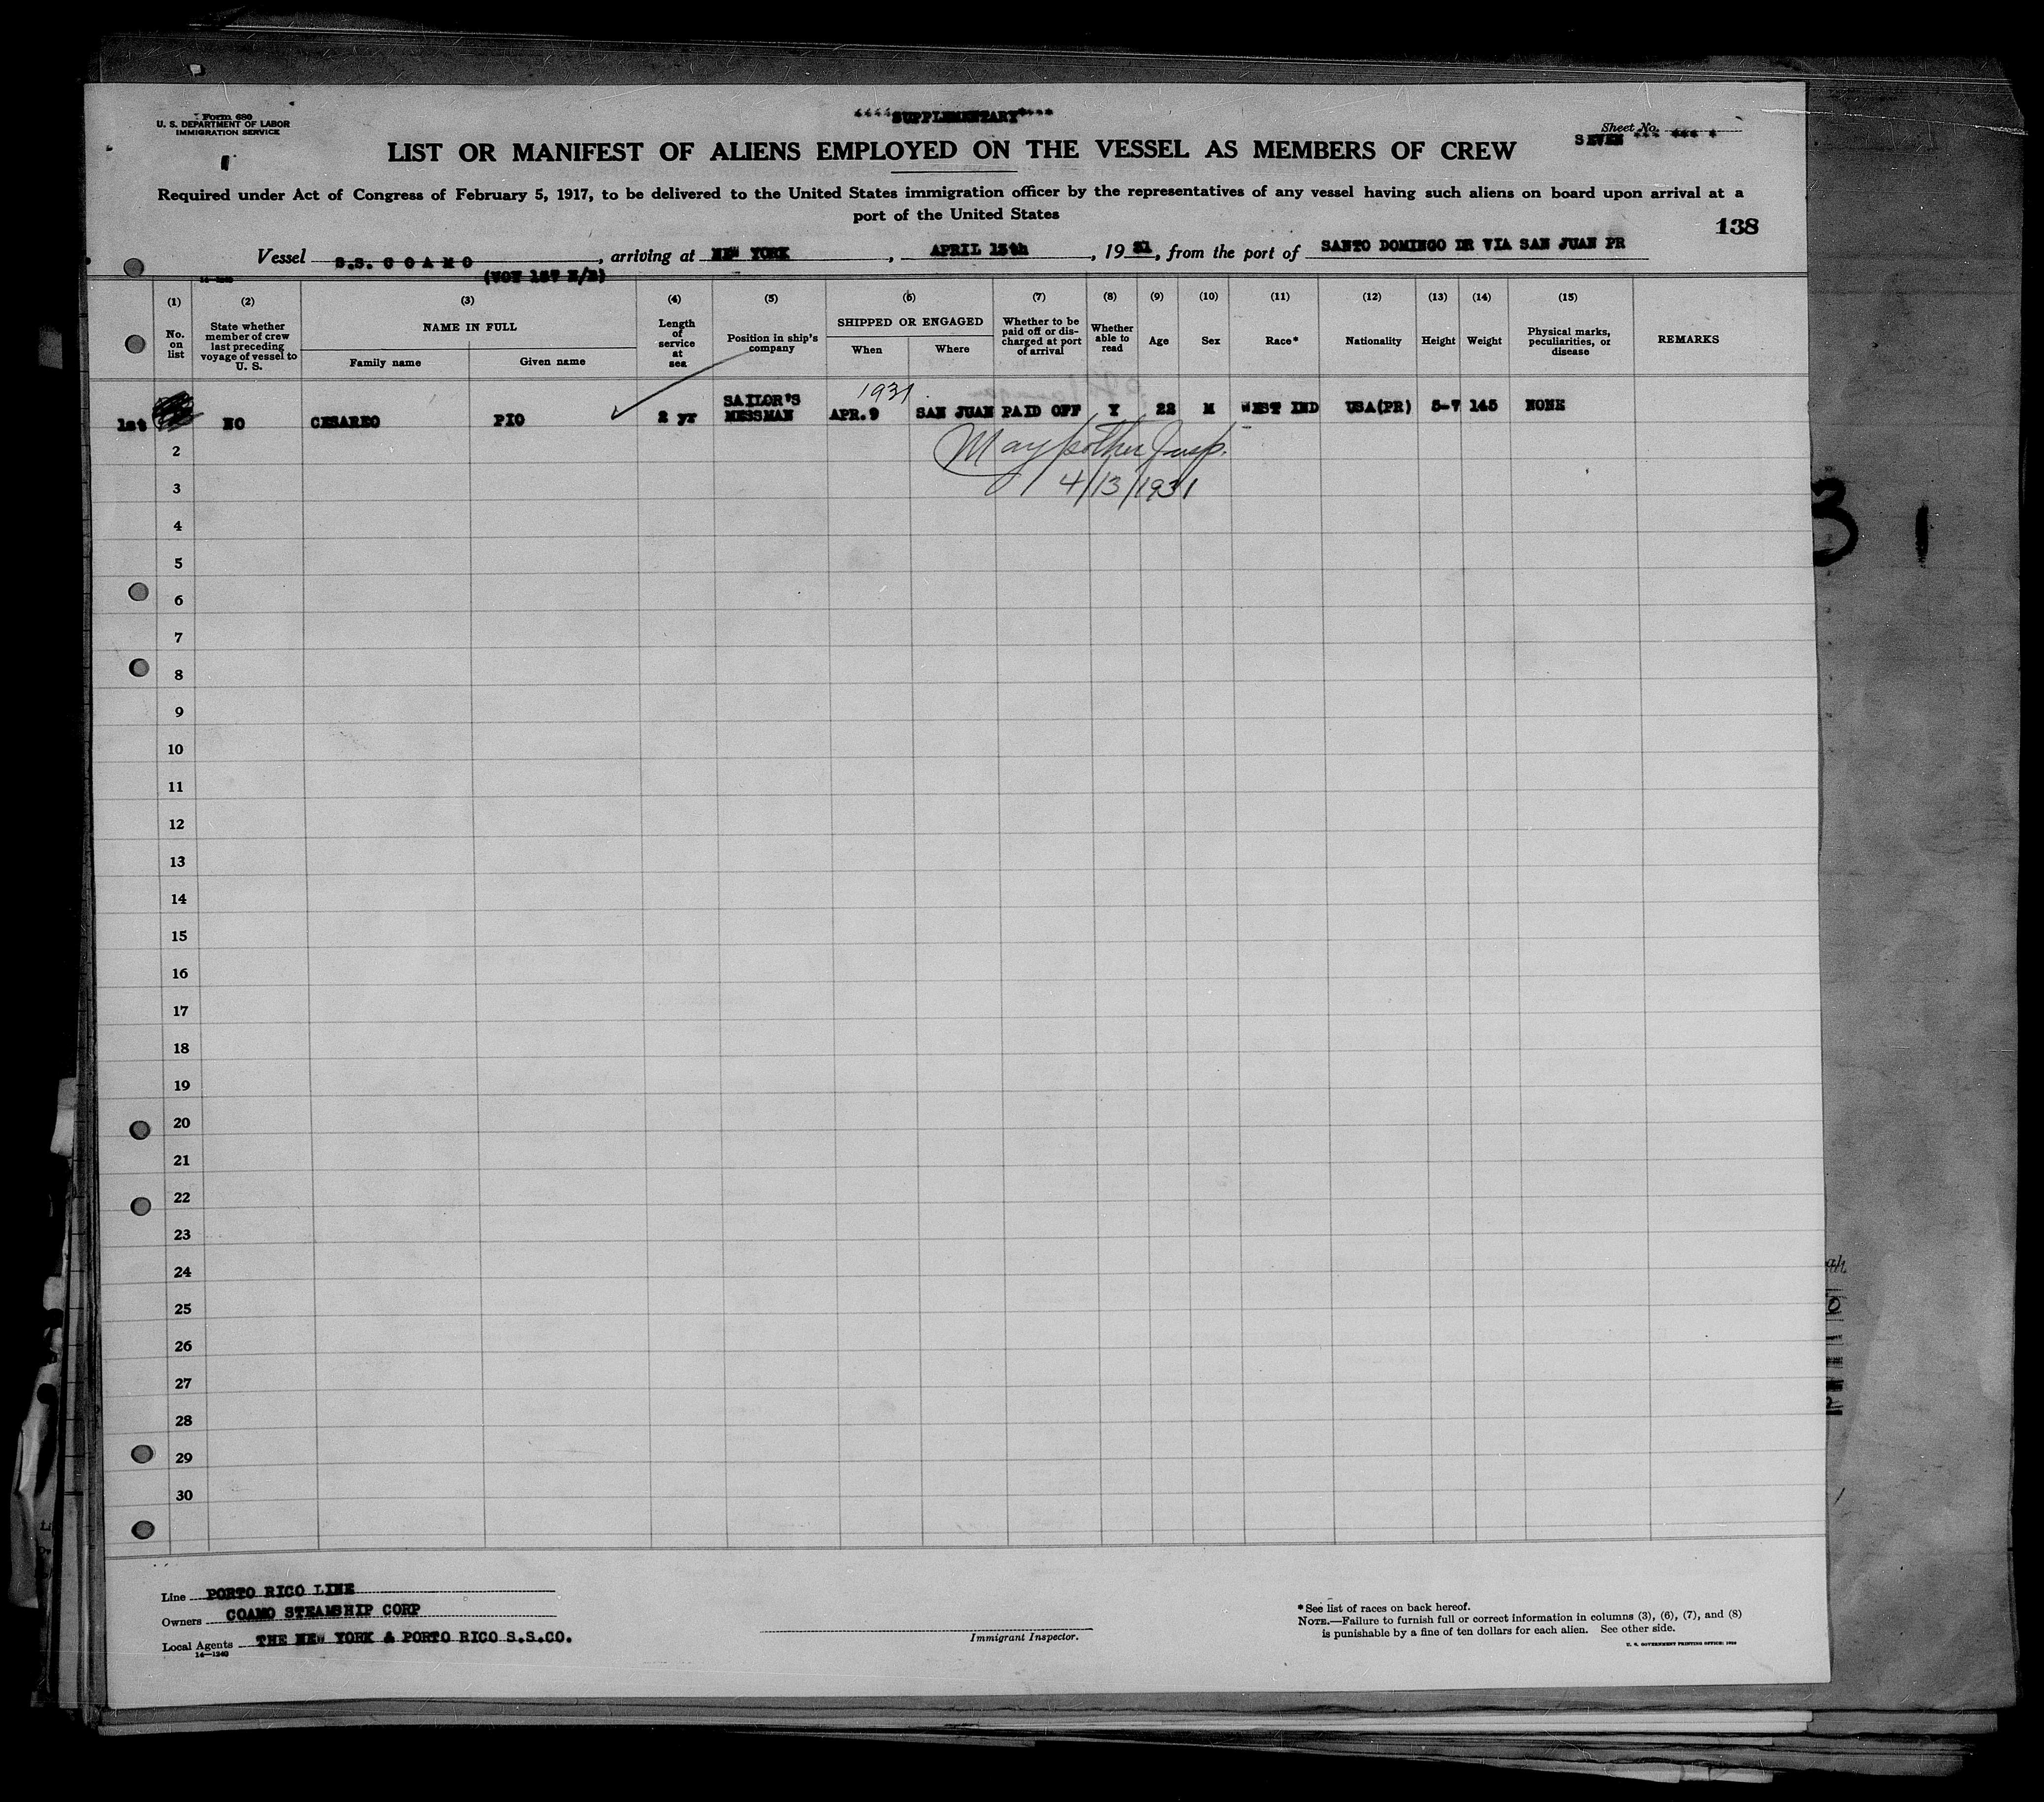 Form 680
U. S. DEPARTMENT OF LABOR
IMMIGRATION SERVICE
****SUPPLEMENTARY****
Sheet No.
SEVEN *** *** *
LIST OR MANIFEST OF ALIENS EMPLOYED ON THE VESSEL AS MEMBERS OF CREW
Required under Act of Congress of February 5, 1917, to be delivered to the United States immigration officer by the representatives of any vessel having such aliens on board upon arrival at a
port of the United States
138
Vessel S.S. COAMO, arriving at NEW YORK, APRIL 13th, 1931, from the port of SANTO DOMINGO DR VIA SAN JUAN PR
(VOY 157 N/B)
(1) (2) (3) (4) (5) (6) (7) (8) (9) (10) (11) (12) (13) (14) (15)
No. on list
State whether member of crew last preceding voyage of vessel to U. S.
NAME IN FULL
Family name
Given name
Length of service at sea
Position in ship's company
SHIPPED OR ENGAGED
When
Where
Whether to be paid off or discharged at port of arrival
Whether able to read
Age
Sex
Race*
Nationality
Height
Weight
Physical marks, peculiarities, or disease
REMARKS
1931
1st NO CESAREO PIO 2 yr SAILOR'S MESSMAN APR.9 SAN JUAN PAID OFF Y 22 M WEST IND USA(PR) 5-7 145 NONE
2
Insp.
3
4/13/1931
4
5
6
7
8
9
10
11
12
13
14
15
16
17
18
19
20
21
22
23
24
25
26
27
28
29
30
Line PORTO RICO LINE
Owners COAMO STEAMSHIP CORP
Local Agents THE NEW YORK & PORTO RICO S.S.CO.
14—1240
Immigrant Inspector.
*See list of races on back hereof.
NOTE.—Failure to furnish full or correct information in columns (3), (6), (7), and (8)
is punishable by a fine of ten dollars for each alien. See other side.
U. S. GOVERNMENT PRINTING OFFICE:
3 1